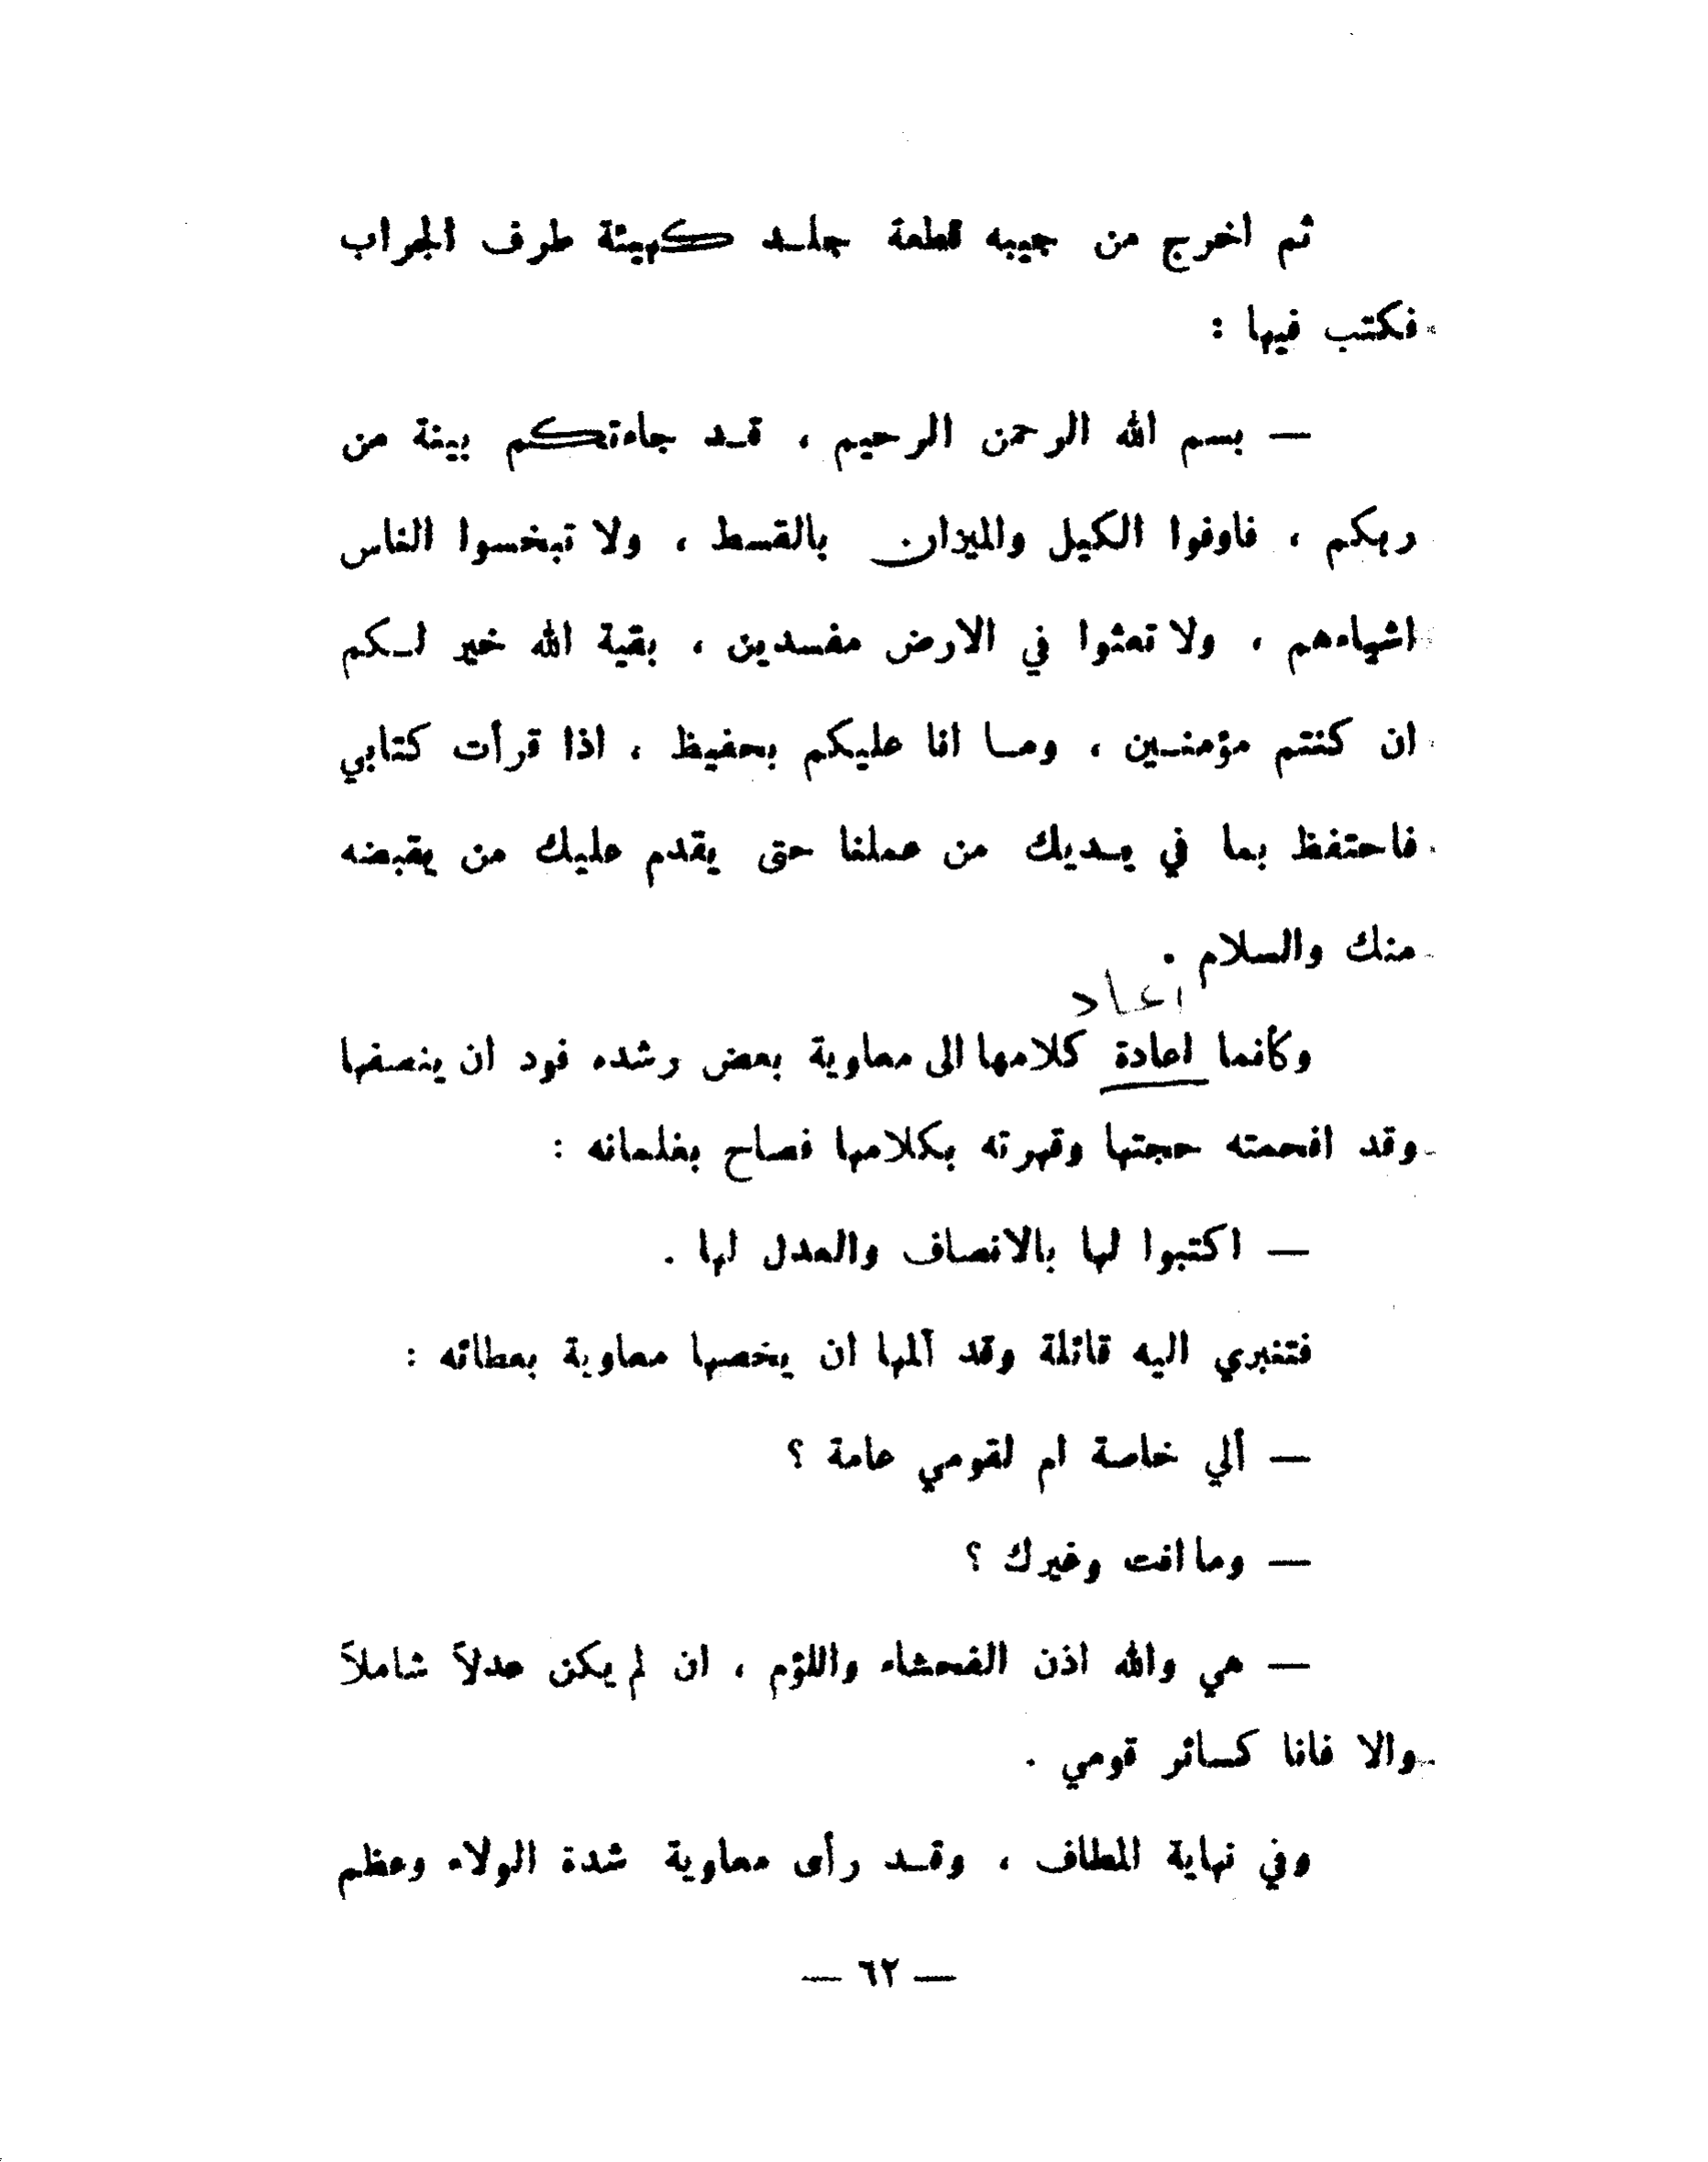 ثم اخرج من جيبه قطعة جلد كهيئة طرف الجراب
فكتب فيها :
— بسم الله الرحمن الرحيم ، قد جاءتكم بينة من
ربكم ، فاوفوا الكيل والميزان بالقسط ، ولا تبخسوا الناس
اشياءهم ، ولا تعثوا في الارض مفسدين ، بقية الله خير لكم
ان كنتم مؤمنين ، وما انا عليكم بحفيظ ، اذا قرأت كتابي
فاحتفظ بما في يديك من عملنا حتى يقدم عليك من يقبضه
منك والسلام .
اعاد
وكأنما اعادة كلامها الى معاوية بعض رشده فود ان ينصفها
وقد افحمته حجتها وقهرته بكلامها فصاح بغلمانه :
— اكتبوا لها بالانصاف والعدل لها .
فتنبري اليه قائلة وقد آلمها ان يخصها معاوية بعطائه :
— ألي خاصة ام لقومي عامة ؟
— وما انت وغيرك ؟
— هي والله اذن الفحشاء واللؤم ، ان لم يكن عدلاً شاملاً
والا فانا كسائر قومي .
وفي نهاية المطاف ، وقد رأى معاوية شدة الولاء وعظم
— ٦٢ —